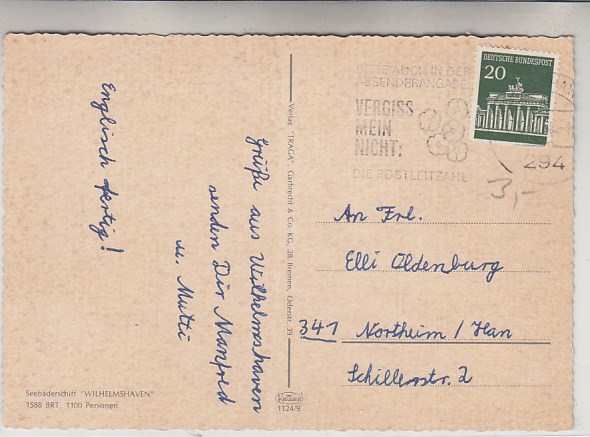 Grüße aus Wilhelmshaven
senden Dir Manfred
u. Mutti
Englisch fertig!
Seebäderschiff "WILHELMSHAVEN"
1588 BRT, 1100 Personen
Verlag "TRAGA", Garbrecht & Co. KG, 28 Bremen, Oderstr. 39
1124/9
BITTE AUCH IN DER
ABSENDERANGABE
VERGISS
MEIN
NICHT:
DIE POSTLEITZAHL
DEUTSCHE BUNDESPOST
20
294
3,-
An Frl.
Elli Oldenburg
341 Northeim / Han
Schillerstr. 2